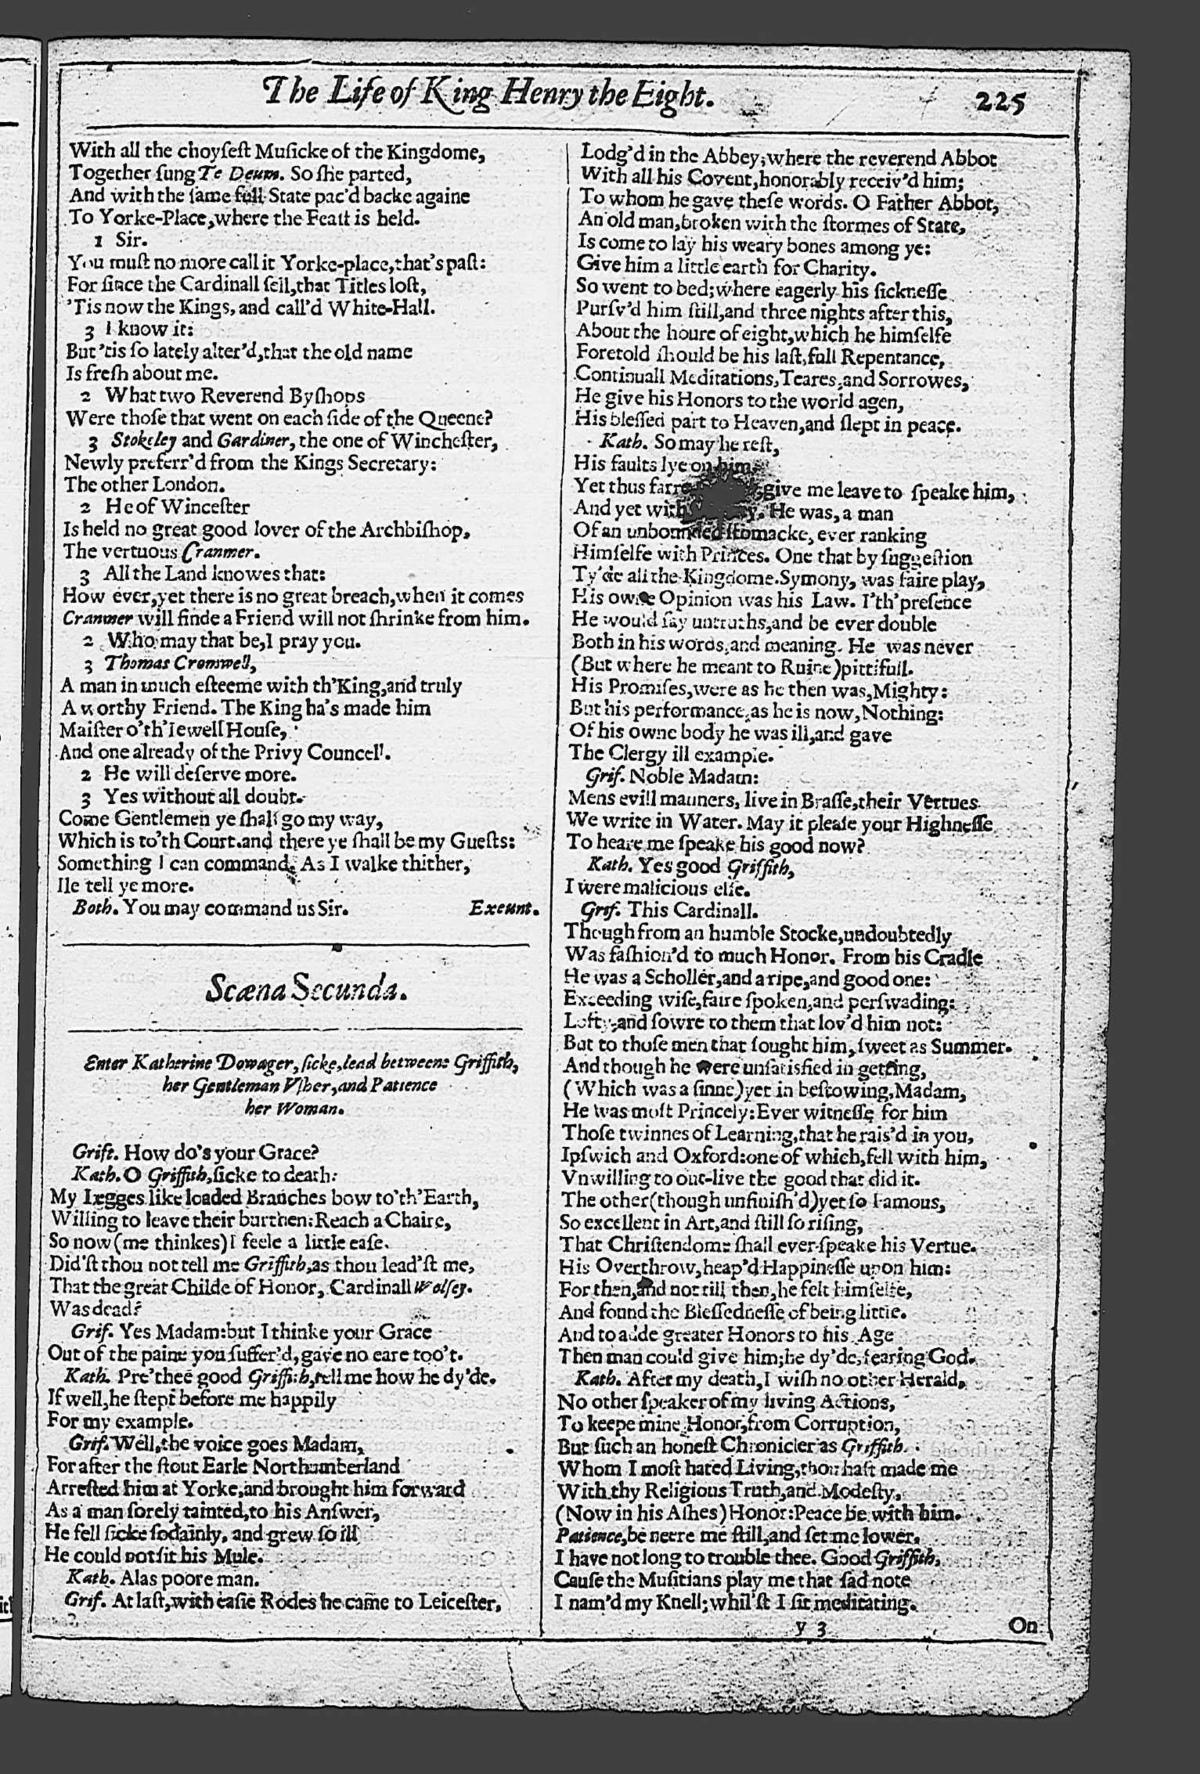 The Life of King Henry the Eight.
225
With all the choyſeſt Muſicke of the Kingdome,
Together ſung Te Deum. So ſhe parted,
And with the ſame full State pac'd backe againe
To Yorke-Place, where the Feaſt is held.
1 Sir.
You muſt no more call it Yorke-place, that's paſt:
For ſince the Cardinall fell, that Titles loſt,
'Tis now the Kings, and call'd White-Hall.
3 I know it:
But 'tis ſo lately alter'd, that the old name
Is freſh about me.
2 What two Reverend Byſhops
Were thoſe that went on each ſide of the Queene?
3 Stokeley and Gardiner, the one of Wincheſter,
Newly preferr'd from the Kings Secretary:
The other London.
2 He of Winceſter
Is held no great good lover of the Archbiſhop,
The vertuous Cranmer.
3 All the Land knowes that:
How ever, yet there is no great breach, when it comes
Cranmer will finde a Friend will not ſhrinke from him.
2 Who may that be, I pray you.
3 Thomas Cromwell,
A man in much eſteeme with th'King, and truly
A worthy Friend. The King ha's made him
Maiſter o'th'Iewell Houſe,
And one already of the Privy Councell.
2 He will deſerve more.
3 Yes without all doubt.
Come Gentlemen ye ſhall go my way,
Which is to'th Court, and there ye ſhall be my Gueſts:
Something I can command. As I walke thither,
Ile tell ye more.
Both. You may command us Sir. Exeunt.
Scæna Secunda.
Enter Katherine Dowager, ſicke, lead betweene Griffith,
her Gentleman Vſher, and Patience
her Woman.
Grift. How do's your Grace?
Kath. O Griffith, ſicke to death:
My Legges like loaded Branches bow to'th'Earth,
Willing to leave their burthen: Reach a Chaire,
So now (me thinkes) I feele a little eaſe.
Did'ſt thou not tell me Griffith, as thou lead'ſt me,
That the great Childe of Honor, Cardinall Wolſey.
Was dead?
Grif. Yes Madam: but I thinke your Grace
Out of the paine you ſuffer'd, gave no eare too't.
Kath. Pre'thee good Griffith, tell me how he dy'de.
If well, he ſtept before me happily
For my example.
Grif. Well, the voice goes Madam,
For after the ſtout Earle Northumberland
Arreſted him at Yorke, and brought him forward
As a man ſorely tainted, to his Anſwer,
He fell ſicke ſodainly, and grew ſo ill
He could not ſit his Mule.
Kath. Alas poore man.
Grif. At laſt, with eaſie Rodes he came to Leiceſter,
Lodg'd in the Abbey; where the reverend Abbot
With all his Covent, honorably receiv'd him;
To whom he gave theſe words. O Father Abbot,
An old man, broken with the ſtormes of State,
Is come to lay his weary bones among ye:
Give him a little earth for Charity.
So went to bed; where eagerly his ſickneſſe
Purſv'd him ſtill, and three nights after this,
About the houre of eight, which he himſelfe
Foretold ſhould be his laſt, full Repentance,
Continuall Meditations, Teares, and Sorrowes,
He give his Honors to the world agen,
His bleſſed part to Heaven, and ſlept in peace.
Kath. So may he reſt,
His faults lye on him:
Yet thus farre give me leave to ſpeake him,
And yet with He was, a man
Of an unbounded ſtomacke, ever ranking
Himſelfe with Princes. One that by ſuggeſtion
Ty'de all the Kingdome. Symony, was faire play,
His owne Opinion was his Law. I'th'preſence
He would ſay untruths, and be ever double
Both in his words, and meaning. He was never
(But where he meant to Ruine) pittifull.
His Promiſes, were as he then was, Mighty:
But his performance, as he is now, Nothing:
Of his owne body he was ill, and gave
The Clergy ill example.
Grif. Noble Madam:
Mens evill manners, live in Braſſe, their Vertues
We write in Water. May it pleaſe your Highneſſe
To heare me ſpeake his good now?
Kath. Yes good Griffith,
I were malicious elſe.
Grif. This Cardinall.
Though from an humble Stocke, undoubtedly
Was faſhion'd to much Honor. From his Cradle
He was a Scholler, and a ripe, and good one:
Exceeding wiſe, faire ſpoken, and perſwading:
Lofty, and ſowre to them that lov'd him not:
But to thoſe men that ſought him, ſweet as Summer.
And though he were unſatisfied in getting,
(Which was a ſinne) yet in beſtowing, Madam,
He was moſt Princely: Ever witneſſe for him
Thoſe twinnes of Learning, that he rais'd in you,
Ipſwich and Oxford: one of which, fell with him,
Vnwilling to out-live the good that did it.
The other (though unfiniſh'd) yet ſo Famous,
So excellent in Art, and ſtill ſo riſing,
That Chriſtendome ſhall ever ſpeake his Vertue.
His Overthrow, heap'd Happineſſe upon him:
For then, and not till then, he felt himſelfe,
And found the Bleſſedneſſe of being little.
And to adde greater Honors to his Age
Then man could give him; he dy'de, fearing God.
Kath. After my death, I wiſh no other Herald,
No other ſpeaker of my living Actions,
To keepe mine Honor, from Corruption,
But ſuch an honeſt Chronicler as Griffith.
Whom I moſt hated Living, thou haſt made me
With thy Religious Truth, and Modeſty,
(Now in his Aſhes) Honor: Peace be with him.
Patience, be neere me ſtill, and ſet me lower.
I have not long to trouble thee. Good Griffith,
Cauſe the Muſitians play me that ſad note
I nam'd my Knell; whil'ſt I ſit meditating.
y 3 On